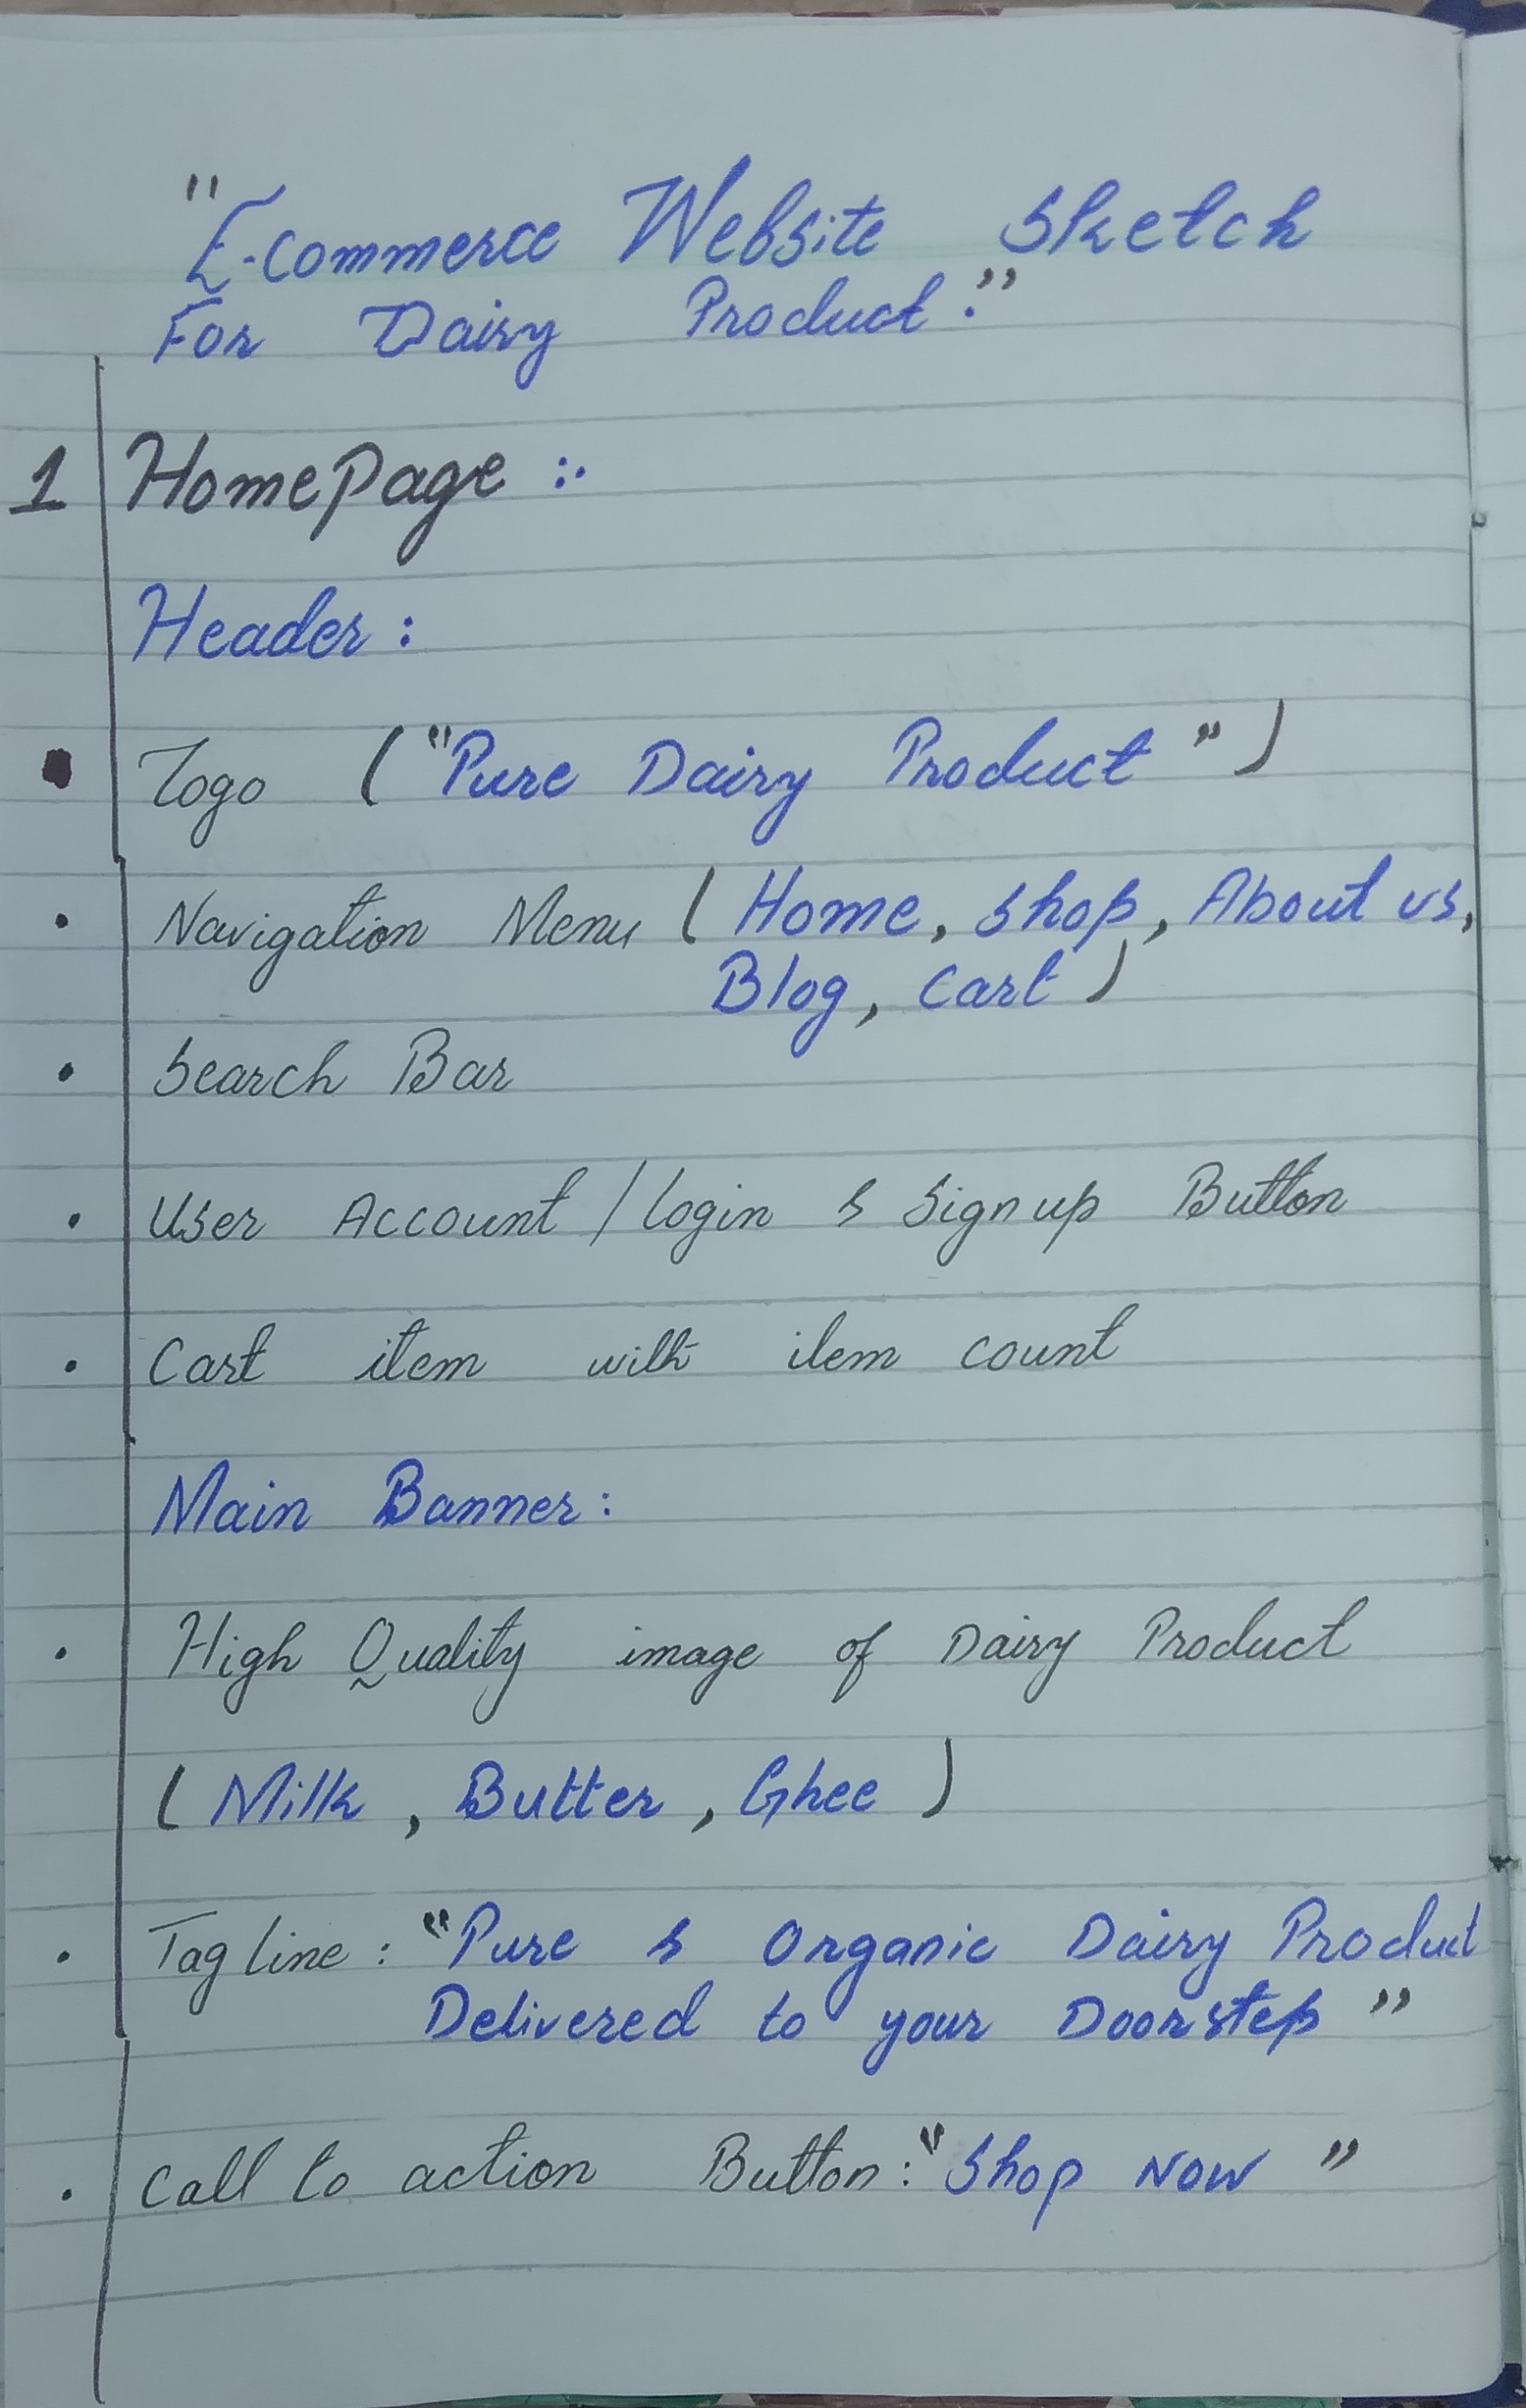 "E-commerce Website Sketch
For Dairy Product."
1 HomePage :-
Header :
• Logo ("Pure Dairy Product")
• Navigation Menu (Home, Shop, About us,
Blog, Cart)
• Search Bar
• User Account / login & Sign up Button
• Cart item with item count
Main Banner :
• High Quality image of Dairy Product
(Milk, Butter, Ghee)
• Tag line : "Pure & Organic Dairy Product
Delivered to your Doorstep"
• Call to action Button : "Shop Now"